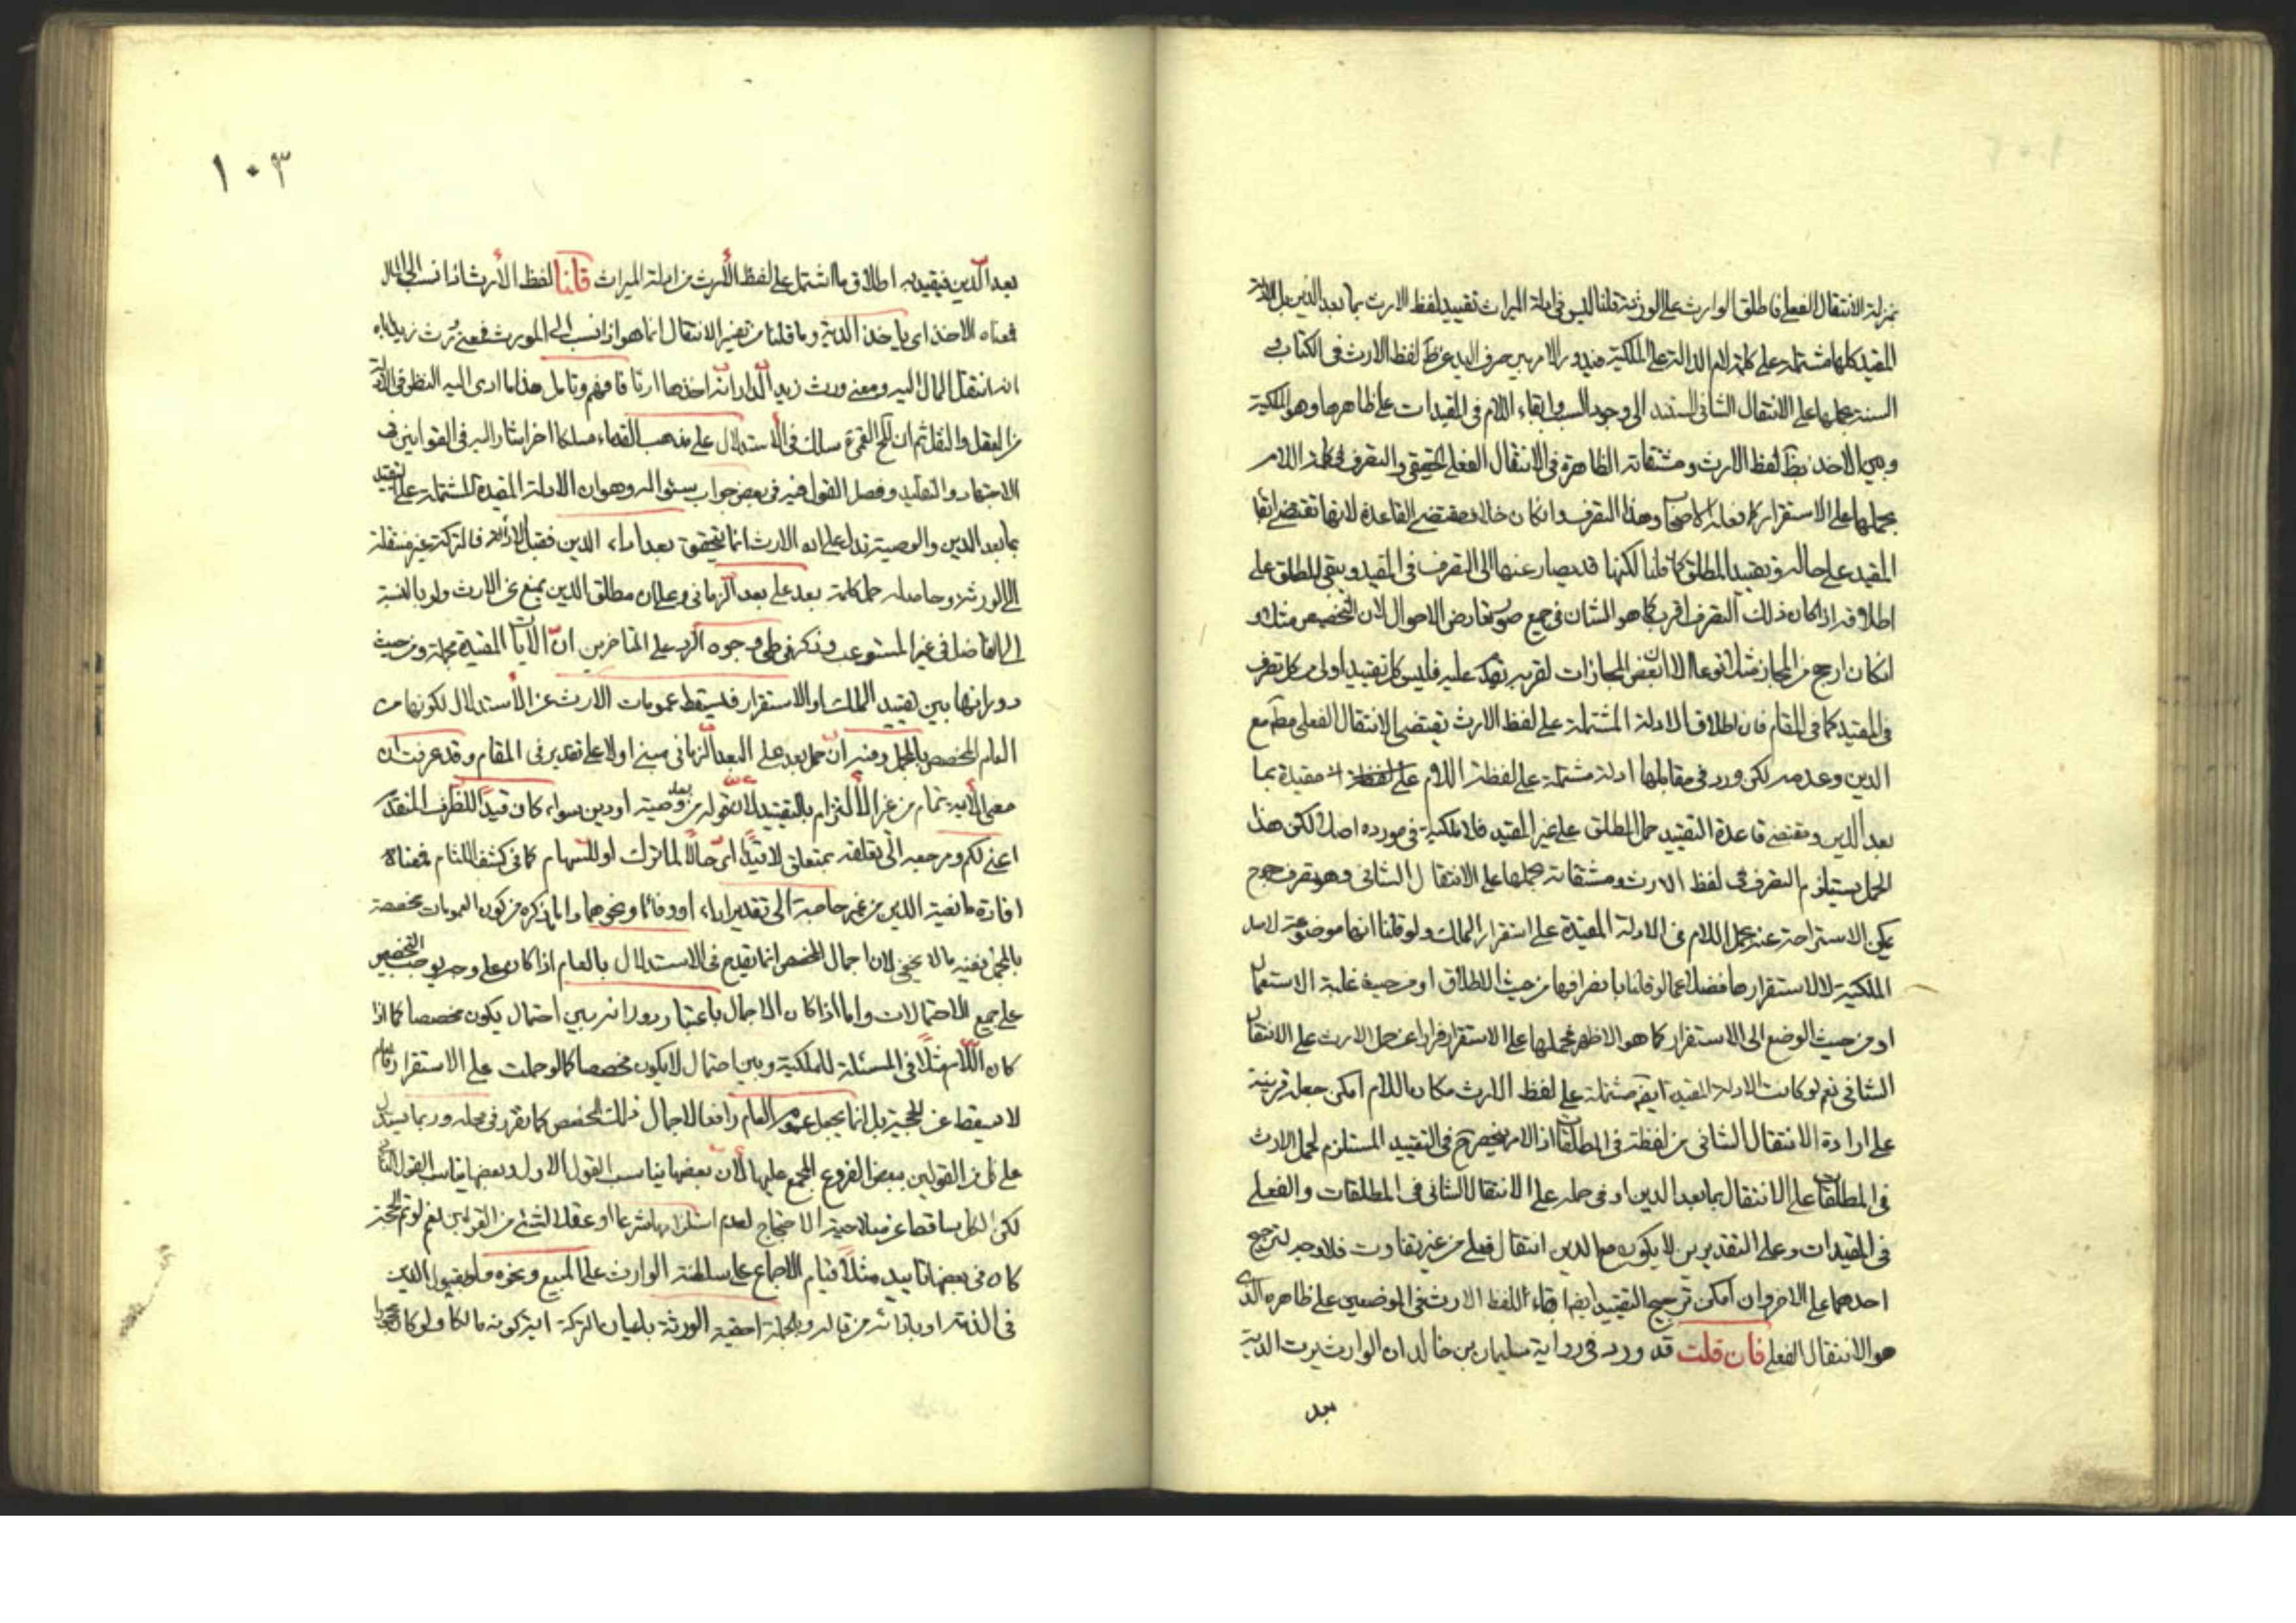 بمنزلة الانتقال الفعلي فاطلق الوارث على الورثة قلنا ليس في ادلة الميراث تقييد لفظ الارث بما بعد الدين بل الادلة
المقيدة كلها مشتملة على كلمة اللام الدالة على الملكية فيدور الامر بين صرف اليد عن ظ لفظ الارث في الكتاب و
السنة بحملها على الانتقال الشاني المستند الى وجود السبب وابقاء اللام في المقيدات على ظاهرها وهو الملكية
وبين الاخذ بظ لفظ الارث ومشتقاته الظاهرة في الانتقال الفعلي الحقيقي والتصرف في كلمة اللام
بحملها على الاستقرار كما فعله الاصحاب وهذا التصرف وان كان خلاف مقتضى القاعدة لانها تقتضي ابقاء
المقيد على حاله وتقييد المطلق كما قلنا لكنها قد يصار عنها الى التصرف في المقيد ويبقى المطلق على
اطلاقه اذا كان ذلك التصرف اقرب كما هو الشان في جميع صور تعارض الاحوال لان التخصيص مثلا و
ان كان ارجح من المجاز مثلا نوعا الا ان بعض المجازات لقربه يقدم عليه فليس كل تقييد اولى من كل تصرف
في المقيد كما في المقام فان اطلاق الادلة المشتملة على لفظ الارث يقتضي الانتقال الفعلي مطم مع
الدين وعدمه لكن ورد في مقابلها ادلة مشتملة على لفظة اللام مقيدة بما
بعد الدين ومقتضى قاعدة التقييد حمل المطلق على غير المقيد فلا ملكية في مورده اصلا لكن هذا
الحمل يستلزم التصرف في لفظ الارث ومشتقاته بحملها على الانتقال الشاني وهو تصرف مرجوح
يمكن الاستراحة عنه بحمل اللام في الادلة المقيدة على استقرار الملك ولو قلنا انها موضوعة لاصل
الملكية لا لاستقرارها فضلا عما لو قلنا بانصرافها من حيث الاطلاق او من حيث غلبة الاستعمال
او من حيث الوضع الى الاستقرار كما هو الاظهر فحملها على الاستقرار فرارا عن حمل الارث على الانتقال
الشاني نعم لو كانت الادلة المقيدة ايضم مشتملة على لفظ الارث مكان اللام امكن جعله قرينة
على ارادة الانتقال الشاني من لفظة في المطلقات اذ الامر ينحصر ح في التقييد المستلزم لحمل الارث
في المطلقات على الانتقال بما بعد الدين او في حمله على الانتقال الشاني في المطلقات والفعلي
في المقيدات وعلى التقديرين لا يكون مع الدين انتقال فعلي من غير تفاوت فلا وجه لترجيح
احدهما على الاخر وان امكن ترجيح التقييد ايضا ابقاء للفظ الارث في الموضعين على ظاهره الذى
هو الانتقال الفعلي فان قلت قد ورد في رواية سليمان بن خالد ان الوارث يرث الدية
بعد
١٠٣
بعد الدين فيقيد به اطلاق ما اشتمل على لفظ الارث من ادلة الميراث قلنا لفظ الارث اذا نسب الى المال
فمعناه الاخذ اى ياخذ الدية وما قلنا من تفسير الانتقال انما هو اذا نسب الى المورث فمعنى يرث زيد اباه
انه انتقل المال اليه ومعنى ورث زيد الدار انه اخذها ارثا فافهم وتامل هذا ما ادى اليه النظر في الادلة
من العقل والنقل ثم ان المحقق القمي ره سلك في الاستدلال على مذهب القدماء مسلكا اخر اشار اليه في القوانين في
الاجتهاد والتقليد وفصل القول فيه في بعض جواب سئواله وهو ان الادلة المقيدة المشتملة على التقييد
بما بعد الدين والوصية تدل على ان الارث انما يتحقق بعد اداء الدين فقبل الاداء فالتركة غير منتقلة
الى الورثة وحاصله حمل كلمة بعد على بعد الزماني وعلى ان مطلق الدين يمنع عن الارث ولو بالنسبة
الى الفاضل في غير المستوعب وذكر في طي وجوه الرد على المتاخرين ان الايات المقيدة مجملة من حيث
دورانها بين تقييد الملك او الاستقرار فيسقط عمومات الارث عن الاستدلال لكونها من
العام المخصص بالمجمل وفيه ان حمل بعد على البعد الزماني مبني اولا على تقدير في المقام وقد عرفت ان
معنى الاية تمام من غير الالتزام بالتقييد لان قوله من بعد وصية او دين سواء كان قيدا للظرف المتقدم
اعني لكم ومرجعه الى تعلقه بمتعلق لا قيدا اى حالا لما ترك او للسهام كما في كشف اللثام فمعناه
افادة مانعية الدين من غير حاجة الى تقدير اداء او وفاء او نحوهما واما ما ذكره من كون العمومات مخصصة
بالمجمل ففيه ما لا يخفى لان اجمال المخصص انما يقدح في الاستدلال بالعام اذا كان على وجه يوجب التخصيص
على جميع الاحتمالات واما اذا كان الاجمال باعتبار دورانه بين احتمال يكون مخصصا كما اذا
كان اللام مثلا في المسئلة للملكية وبين احتمال لا يكون مخصصا كما لو حملت على الاستقرار فالعام
لا يسقط عن الحجية بل انما يجعل عموم العام رافعا لاجمال ذلك المخصص كما تقرر في محله وربما يستدل
على كل من القولين ببعض الفروع المجمع عليها لان بعضها يناسب القول الاول وبعضها يناسب القول الثاني
لكن الكل ساقط عن صلاحية الاحتجاج لعدم استلزامها شرعا او عقلا لشئ من القولين نعم لو تم الحجة
كان في بعضها تاييد مثلا قيام الاجماع على سلطنة الوارث على المبيع ونحوه
في الذمة او باداءه من ماله وبالجملة احقية الورثة باعيان التركة اية كونه مالكا ولو كان